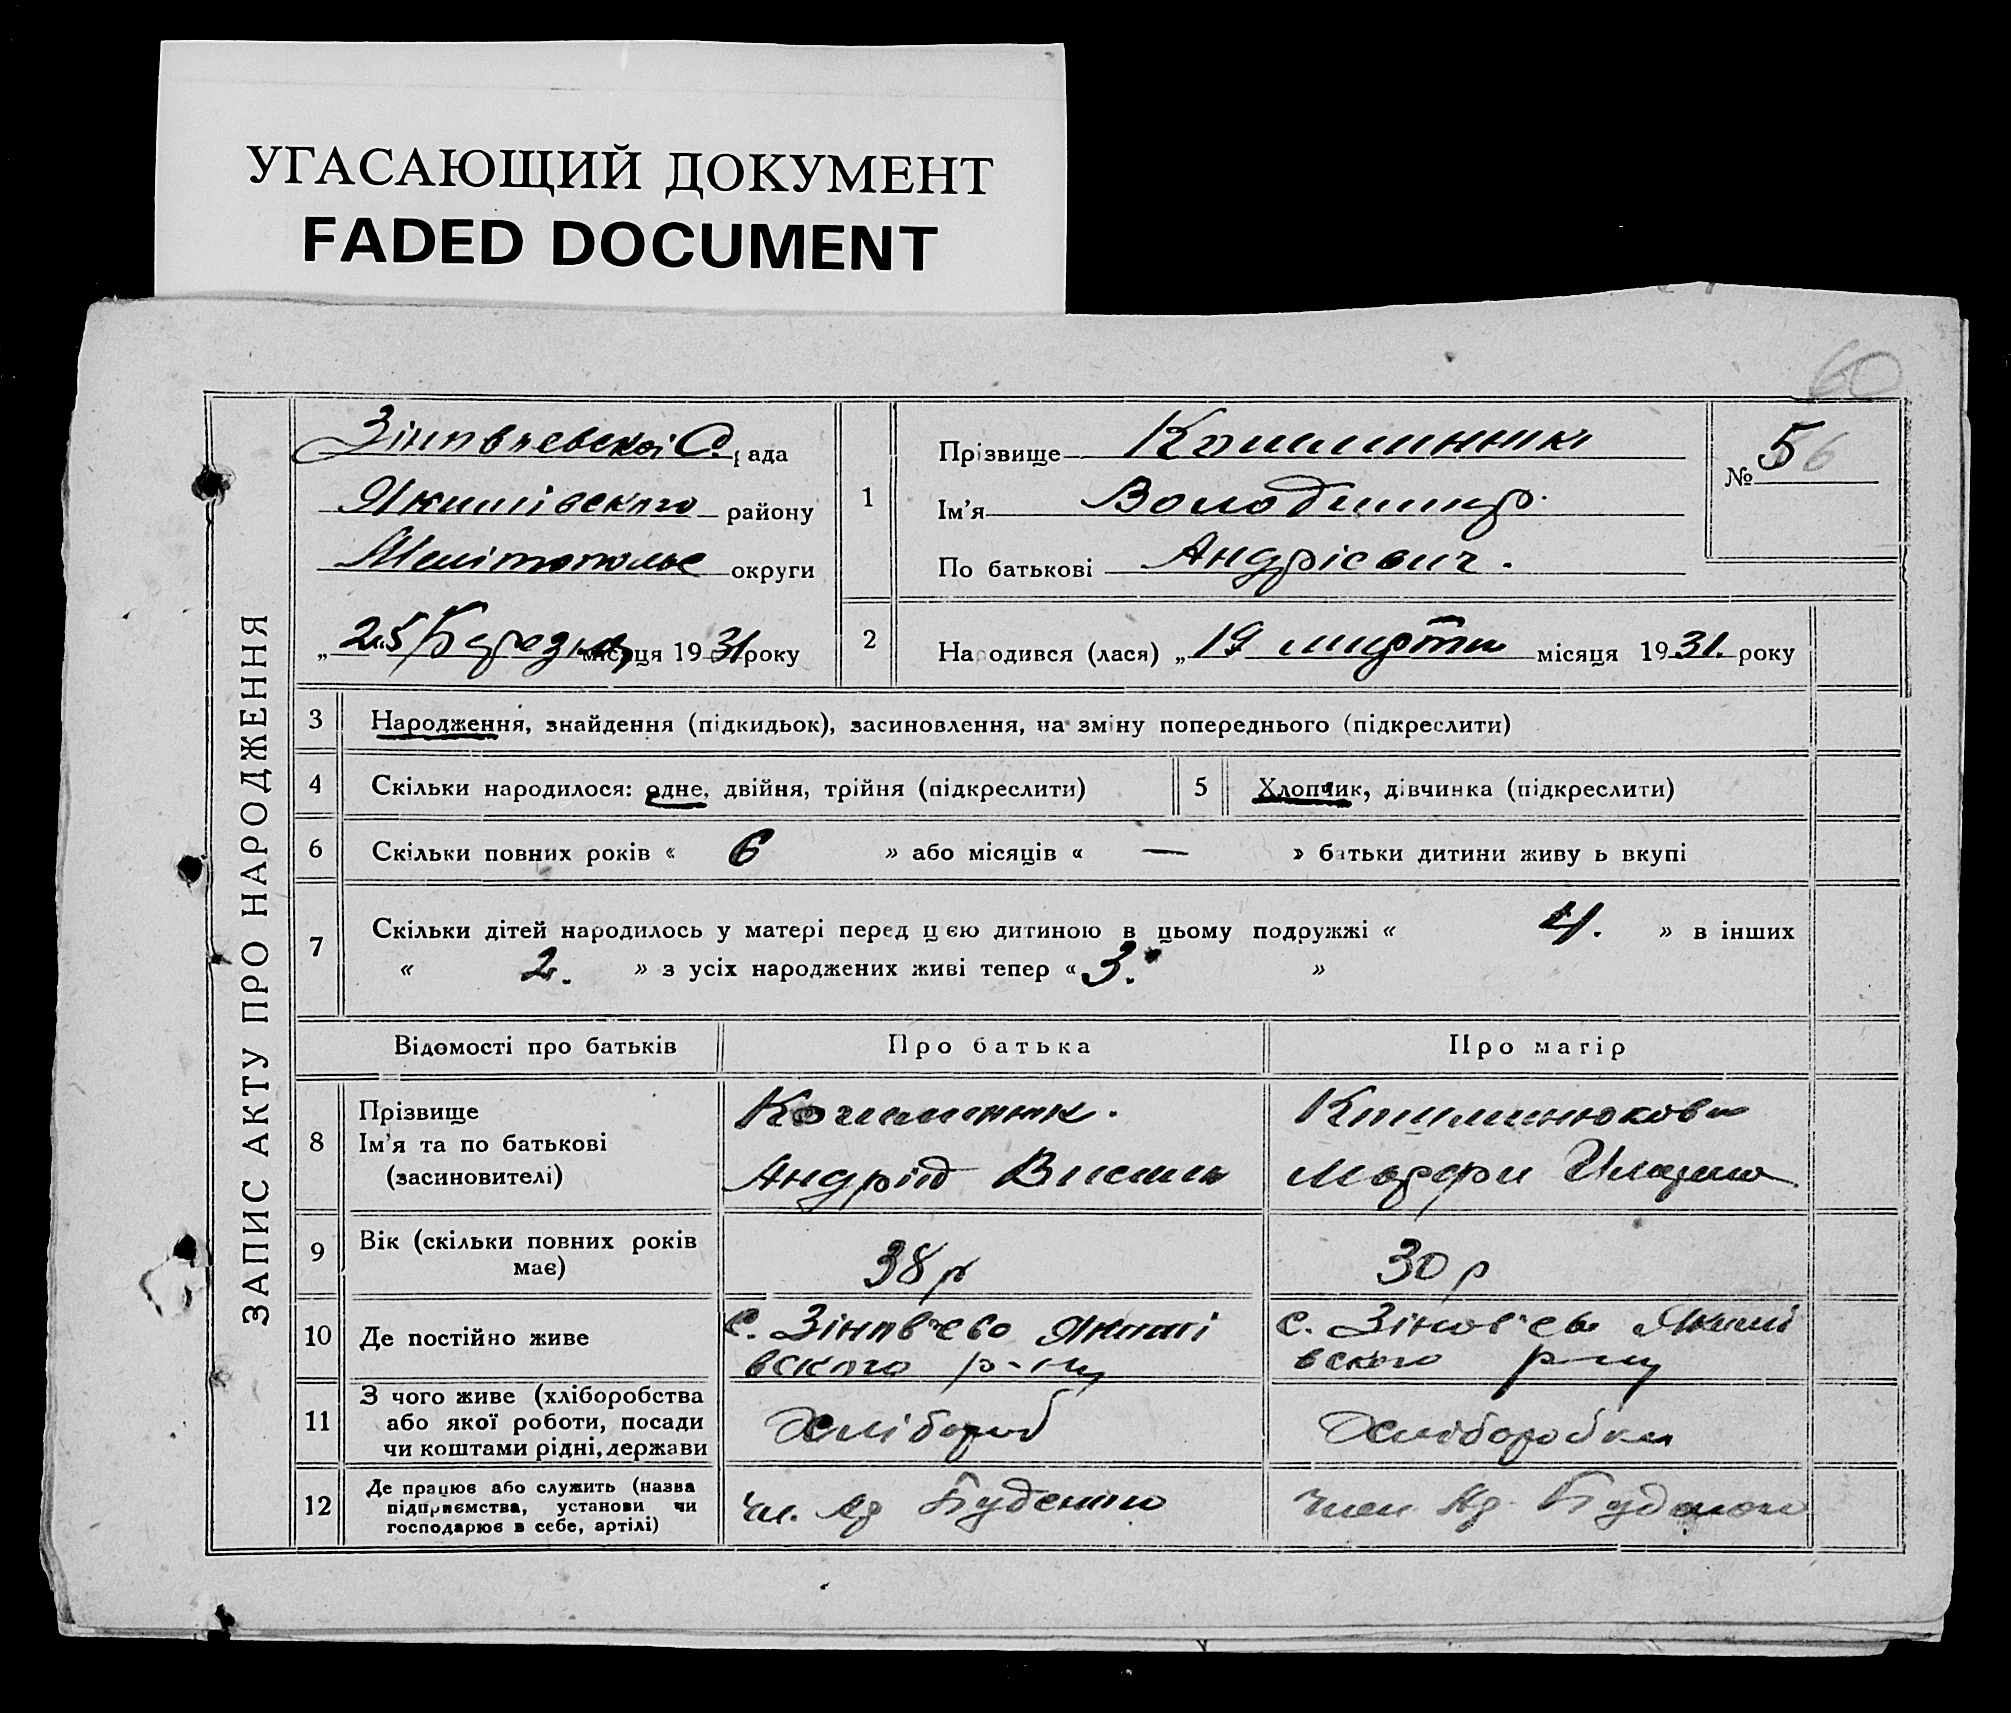 УГАСАЮЩИЙ ДОКУМЕНТ
FADED DOCUMENT
60
ЗАПИС АКТУ ПРО НАРОДЖЕННЯ
С. рада
Якимівского району
Мелітопольс округи
„25 Березня місяця 1931 року
1
Прізвище
Ім'я Володимир.
По батькові Андрієвич.
№ 5
2
Народився (лася) „19 марта місяця 1931. року
3 Народження, знайдення (підкидьок), засиновлення, на зміну попереднього (підкреслити)
4 Скільки народилося: одне, двійня, трійня (підкреслити) 5 Хлопчик, дівчинка (підкреслити)
6 Скільки повних років « 6 » або місяців « — » батьки дитини живу ь вкупі
7 Скільки дітей народилось у матері перед цією дитиною в цьому подружжі « 4. » в інших
« 2. » з усіх народжених живі тепер « 3. »
Відомості про батьків Про батька Про матір
8 Прізвище
Ім'я та по батькові
(засиновителі)
Андрій
9 Вік (скільки повних років
має)
38 р 30 р
10 Де постійно живе
с. Зінов'єво Якимі
вского р-ну
с. Зінов'єво Якимі
вского р-ну
11 З чого живе (хліборобства
або якої роботи, посади
чи коштами рідні, держави
Хлібороб Хліборобка
12 Де працює або служить (назва
підприємства, установи чи
господарює в себе, артілі)
чл. Ар Буденого член Ар. Буденого